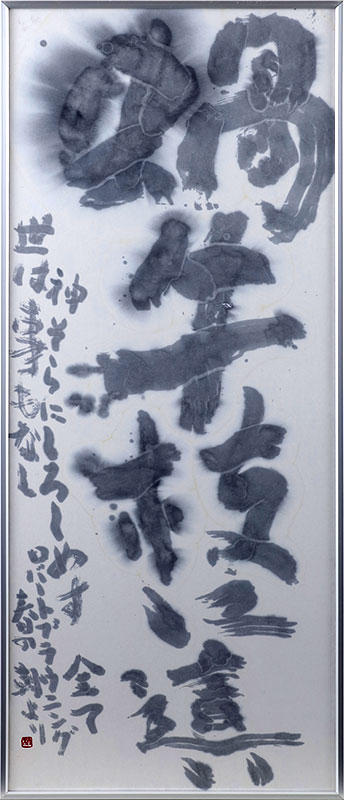 蝸牛枝に這ひ
神そらにしろしめす 全て
世は事もなし
ロバートブラウニング
春の朝より